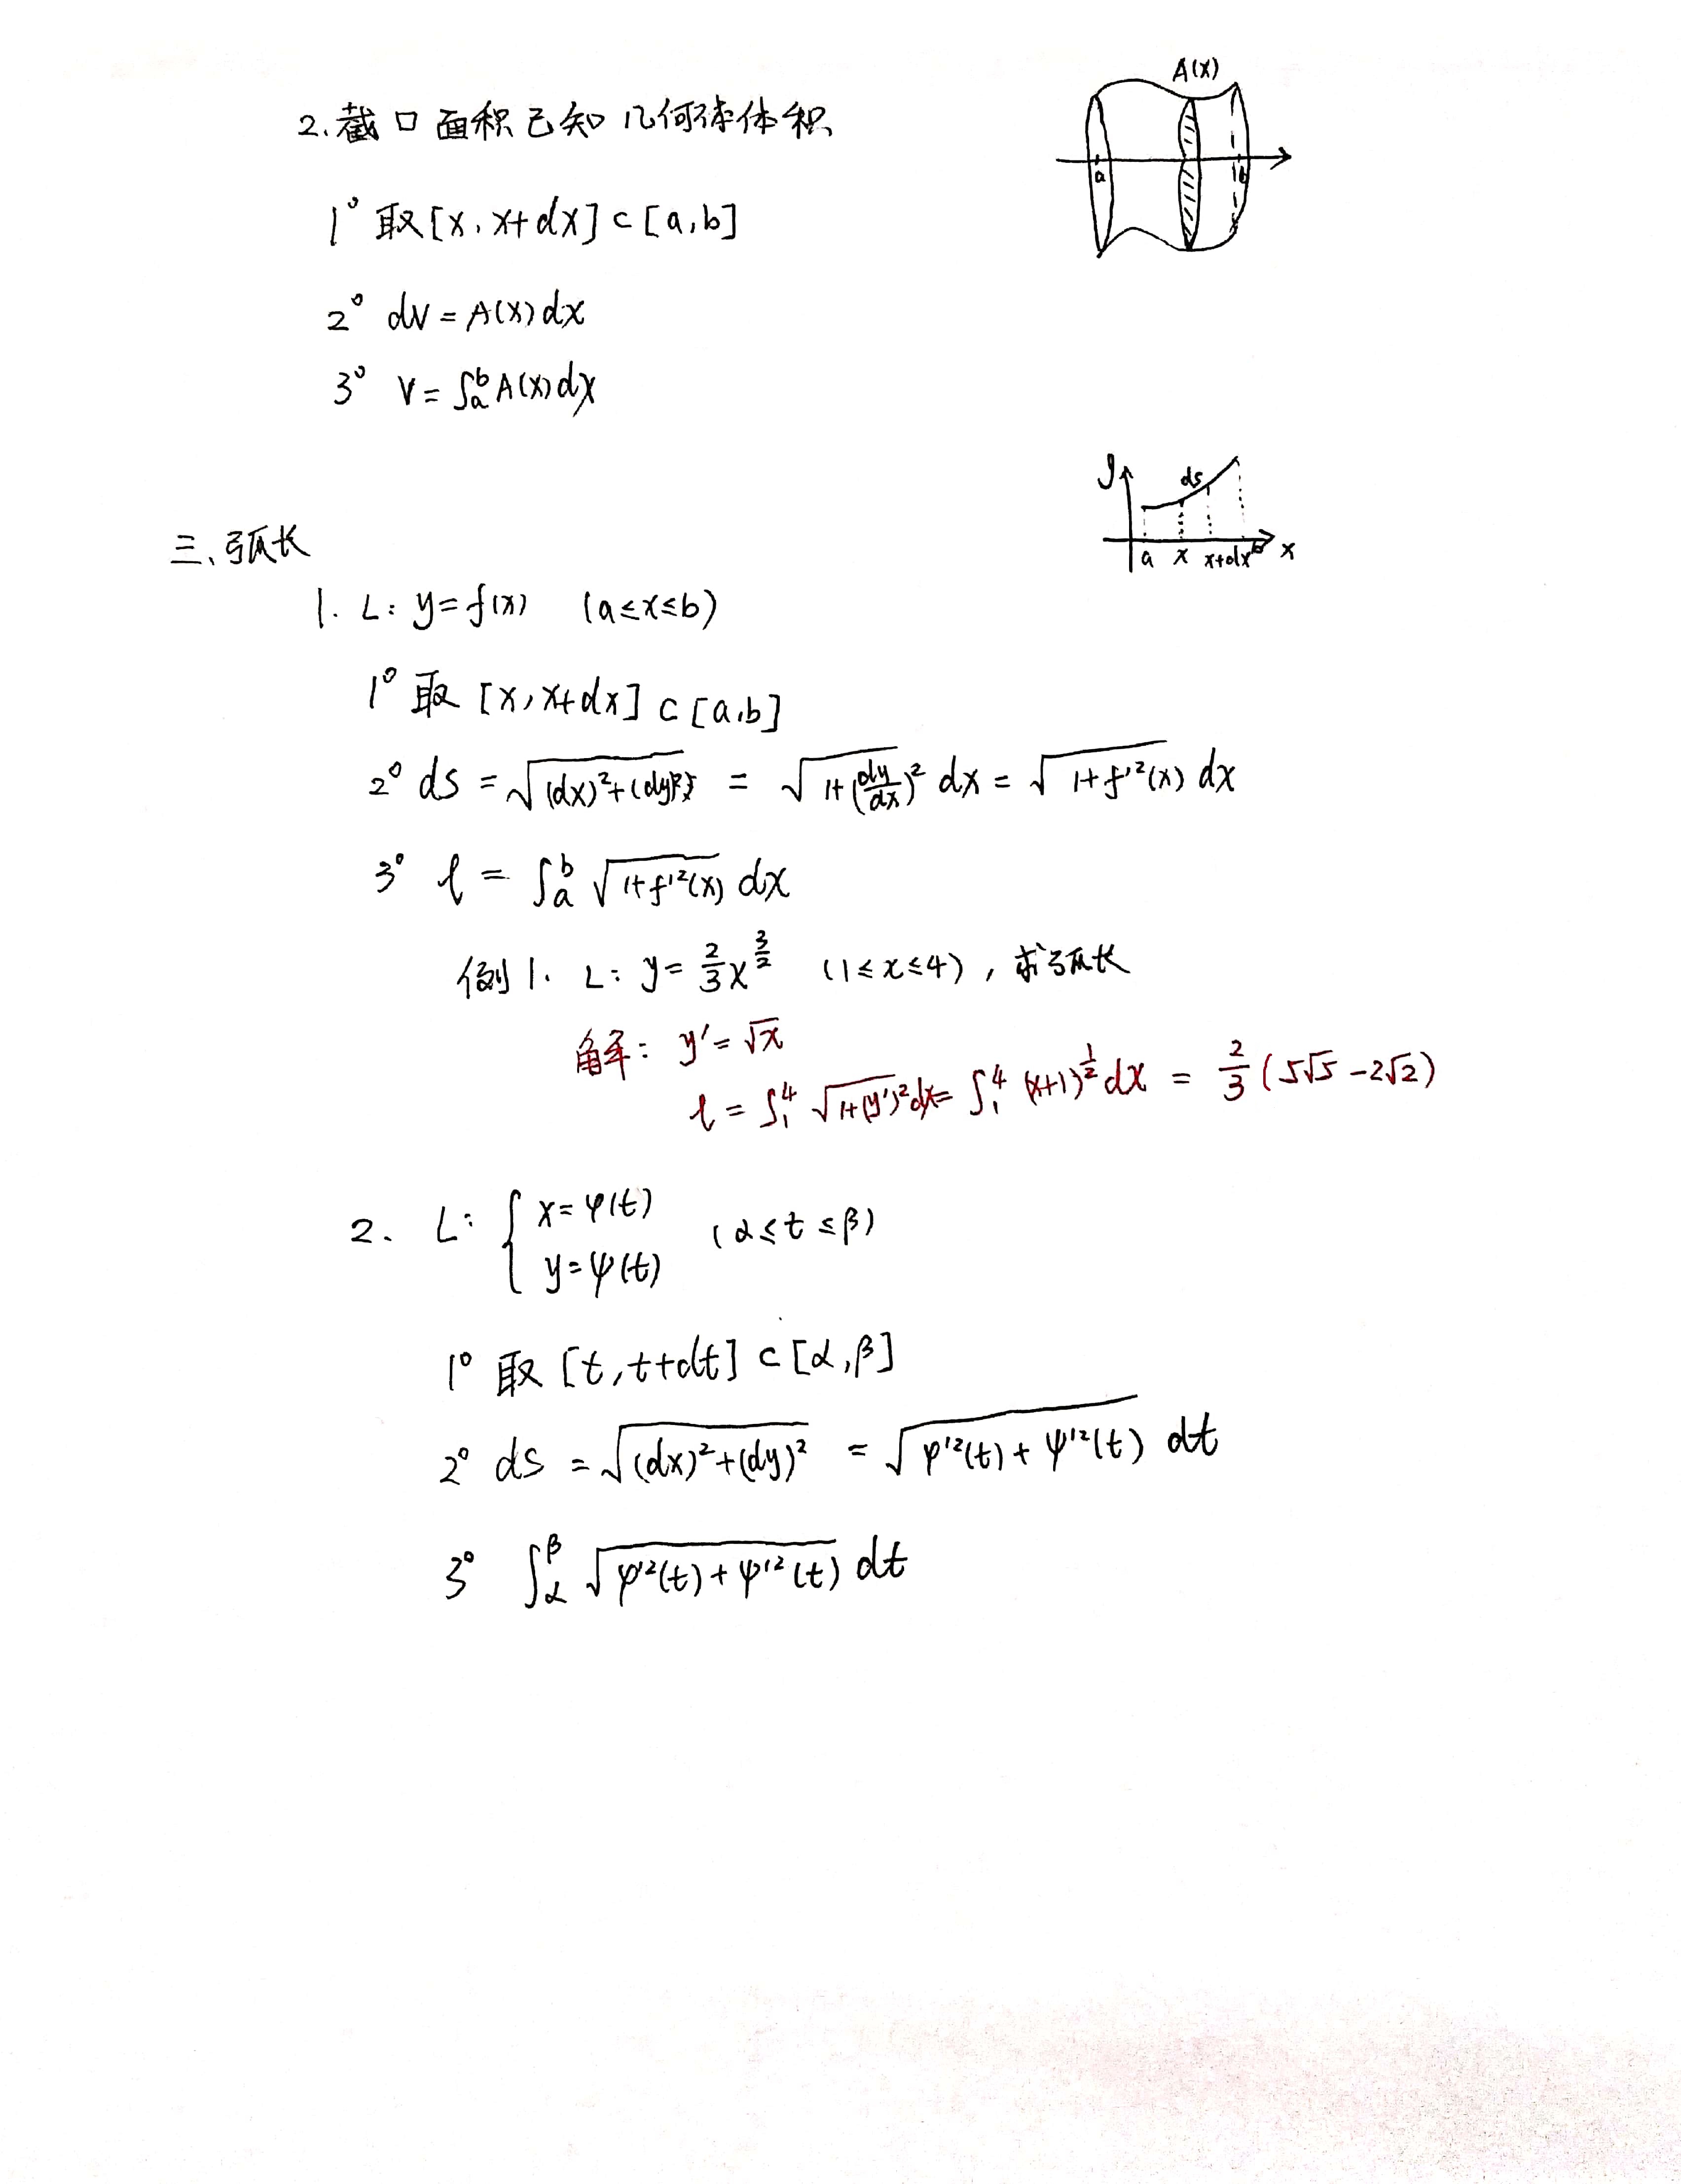 2.截口面积已知几何体体积
A(x)
a b
1° 取[x, x+dx]⊂[a,b]
2° dV=A(x)dx
3° V=∫_a^b A(x)dx
y ds
a x x+dx b x
三、弧长
1. L: y=f(x) (a≤x≤b)
1° 取 [x, x+dx]⊂[a,b]
2° ds=√((dx)²+(dy)²) = √(1+(dy/dx)²) dx=√(1+f'²(x)) dx
3° l = ∫_a^b √(1+f'²(x)) dx
例1. L: y=2/3 x^(3/2) (1≤x≤4), 求弧长
解: y'=√x
l=∫_1^4 √(1+(y')²)dx=∫_1^4 (x+1)^(1/2) dx = 2/3 (5√5-2√2)
2、 L: { x=φ(t) (α≤t≤β)
y=ψ(t)
1° 取 [t, t+dt]⊂[α,β]
2° ds =√((dx)²+(dy)²) =√(φ'²(t)+ψ'²(t)) dt
3° ∫_α^β √(φ'²(t)+ψ'²(t)) dt